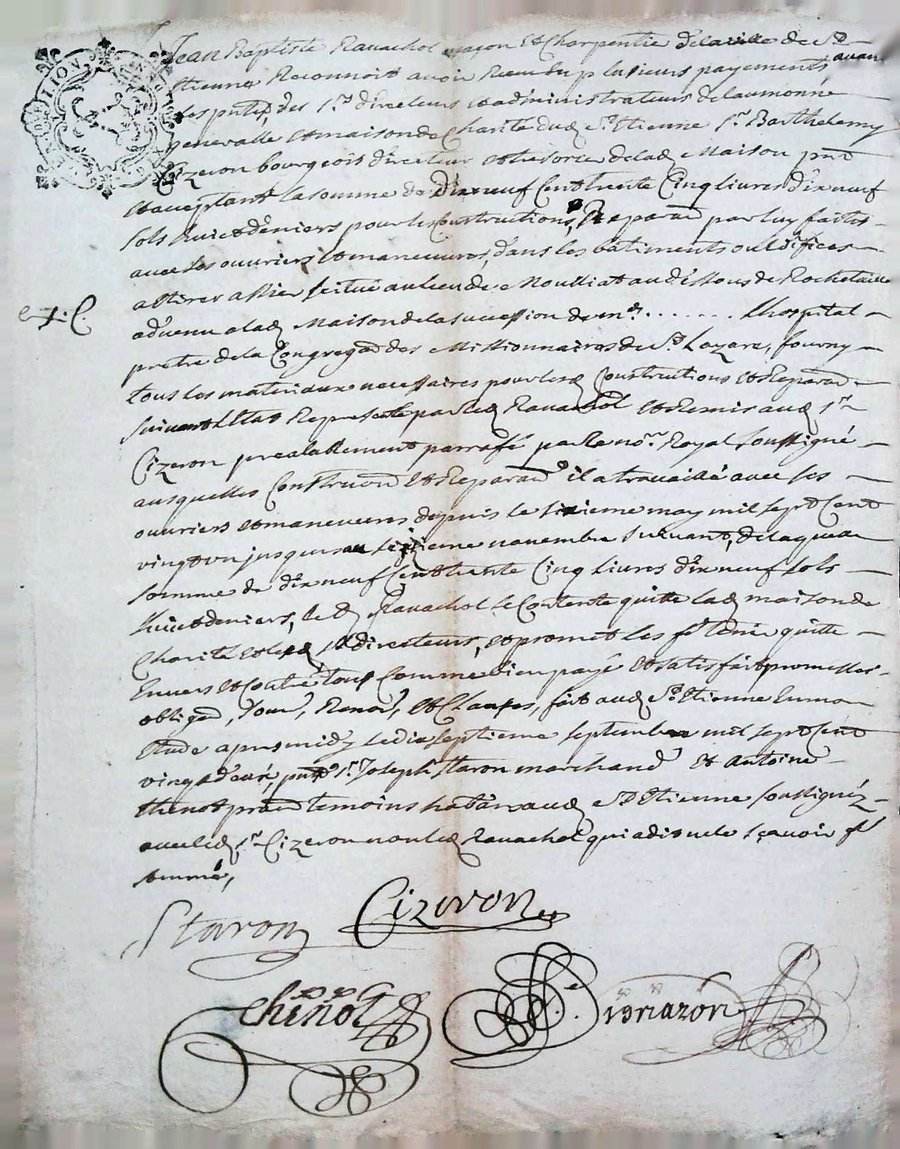 Jean Baptiste Ravachol maçon et Charpentie delaville de St
Etienne Reconnoit avoir Receu en plusieurs payements avant
des pntes, des Srs directeurs et administrateurs de laumonne
generalle et maison de Charité dud St Etienne Sr Barthelemy
Cizeron bourgeois directeur et thresorie delad Maison pnt
et acceptant la somme de dix neuf Cent trente Cinq livres dix neuf
sols huict deniers pour les Constructions, et Reparaons par luy faites
avec ses ouvriers et maneuvres, dans les bâtiments ou Edifices
scitué au lieu de Moulliat au dessous de Rochetaillé
advenu a lad Maison de la succession de mre ....... Lhospital
pretre de la Congregaon des Missionnaires de St Lazare, fourny
tous les materiaux necessaires pour lesd Constructions et Reparaons
suivant L'Etat Represente par led Ravachol et Remis aud Sr
Cizeron prealablement parraffé par le nore Royal soussigné
ausquelles Construons et Reparaons il a travaillé avec ses
ouvriers et maneuvres depuis le sixieme may mil sept Cent
vingt un jusques au sixieme novembre suivant, de laquelle
somme de dix neuf Cent trente Cinq livres dix neuf sols
huict deniers, led Ravachol se Contente quitte lad maison de
Charité et lesd Srs directeurs, et promet les fe tenir quitte
Envers et Contre tous Comme bien payé et satisfait promettant
obligaon, soum, Renon, et Clauses, fait aud St Etienne En mon
Etude apres midy le dix septieme septembre mil sept Cent
vingt deux, pnt Sr Joseph Staron marchand et Antoine
thenot praen temoins habitans aud St Etienne soussignéz
avec led Sr Cizeron non led Ravachol qui a dit ne le sçavoir fe
Staron Cizeron